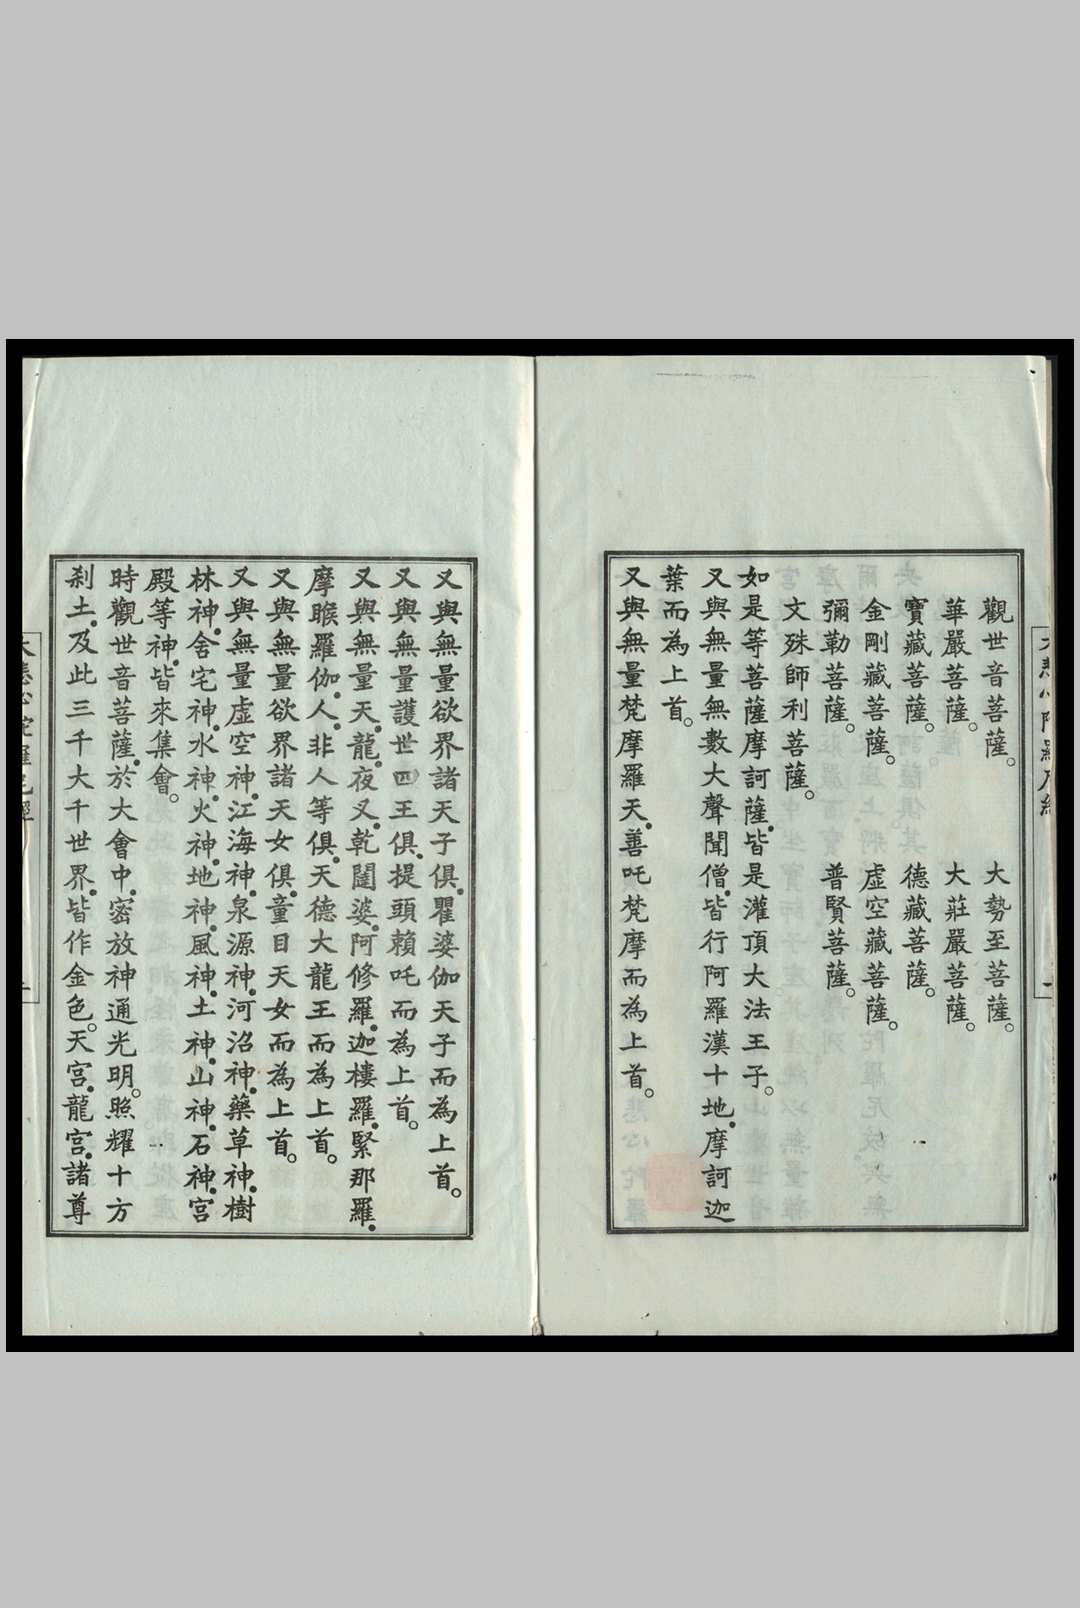 觀世音菩薩。大勢至菩薩。
華嚴菩薩。大莊嚴菩薩。
寶藏菩薩。德藏菩薩。
金剛藏菩薩。虛空藏菩薩。
彌勒菩薩。普賢菩薩。
文殊師利菩薩。
如是等菩薩摩訶薩.皆是灌頂大法王子。
又與無量無數大聲聞僧.皆行阿羅漢十地.摩訶迦
葉而為上首。
又與無量梵摩羅天.善吒梵摩而為上首。
又與無量欲界諸天子俱.瞿婆伽天子而為上首。
又與無量護世四王俱.提頭賴吒而為上首。
又與無量天.龍.夜叉.乾闥婆.阿修羅.迦樓羅.緊那羅.
摩睺羅伽.人.非人等俱.天德大龍王而為上首。
又與無量欲界諸天女俱.童目天女而為上首。
又與無量虛空神.江海神.泉源神.河沼神.藥草神.樹
林神.舍宅神.水神.火神.地神.風神.土神.山神.石神.宮
殿等神.皆來集會。
時觀世音菩薩.於大會中.密放神通光明。照耀十方
剎土.及此三千大千世界.皆作金色。天宮.龍宮.諸尊
大悲心陀羅尼經